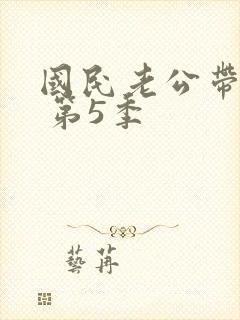 國民老公帶
第5季
藝苒